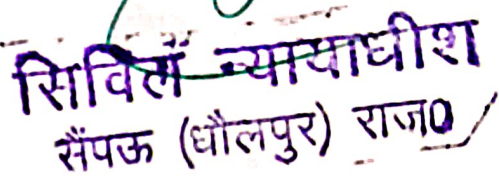 सिविल न्यायाधीश
सैंपऊ (धौलपुर) राज0